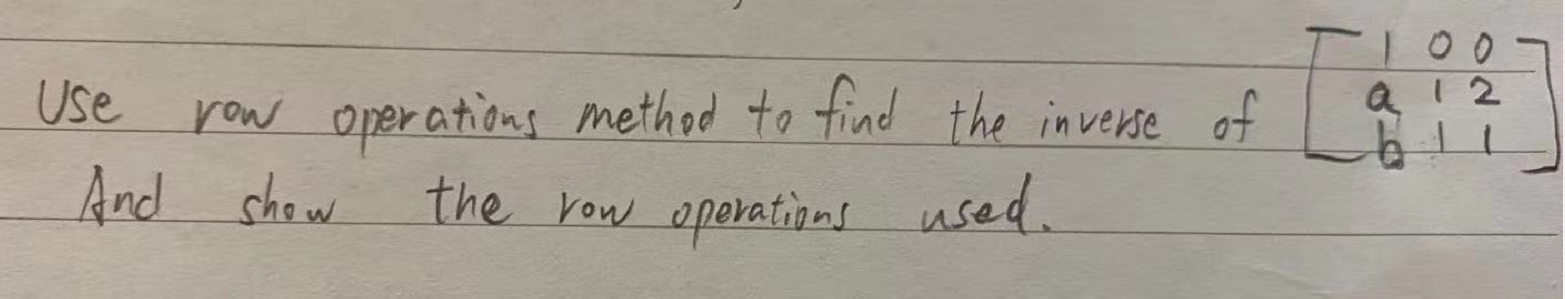 Use row operations method to find the inverse of [1 0 0
a 1 2
b 1 1]
And show the row operations used.